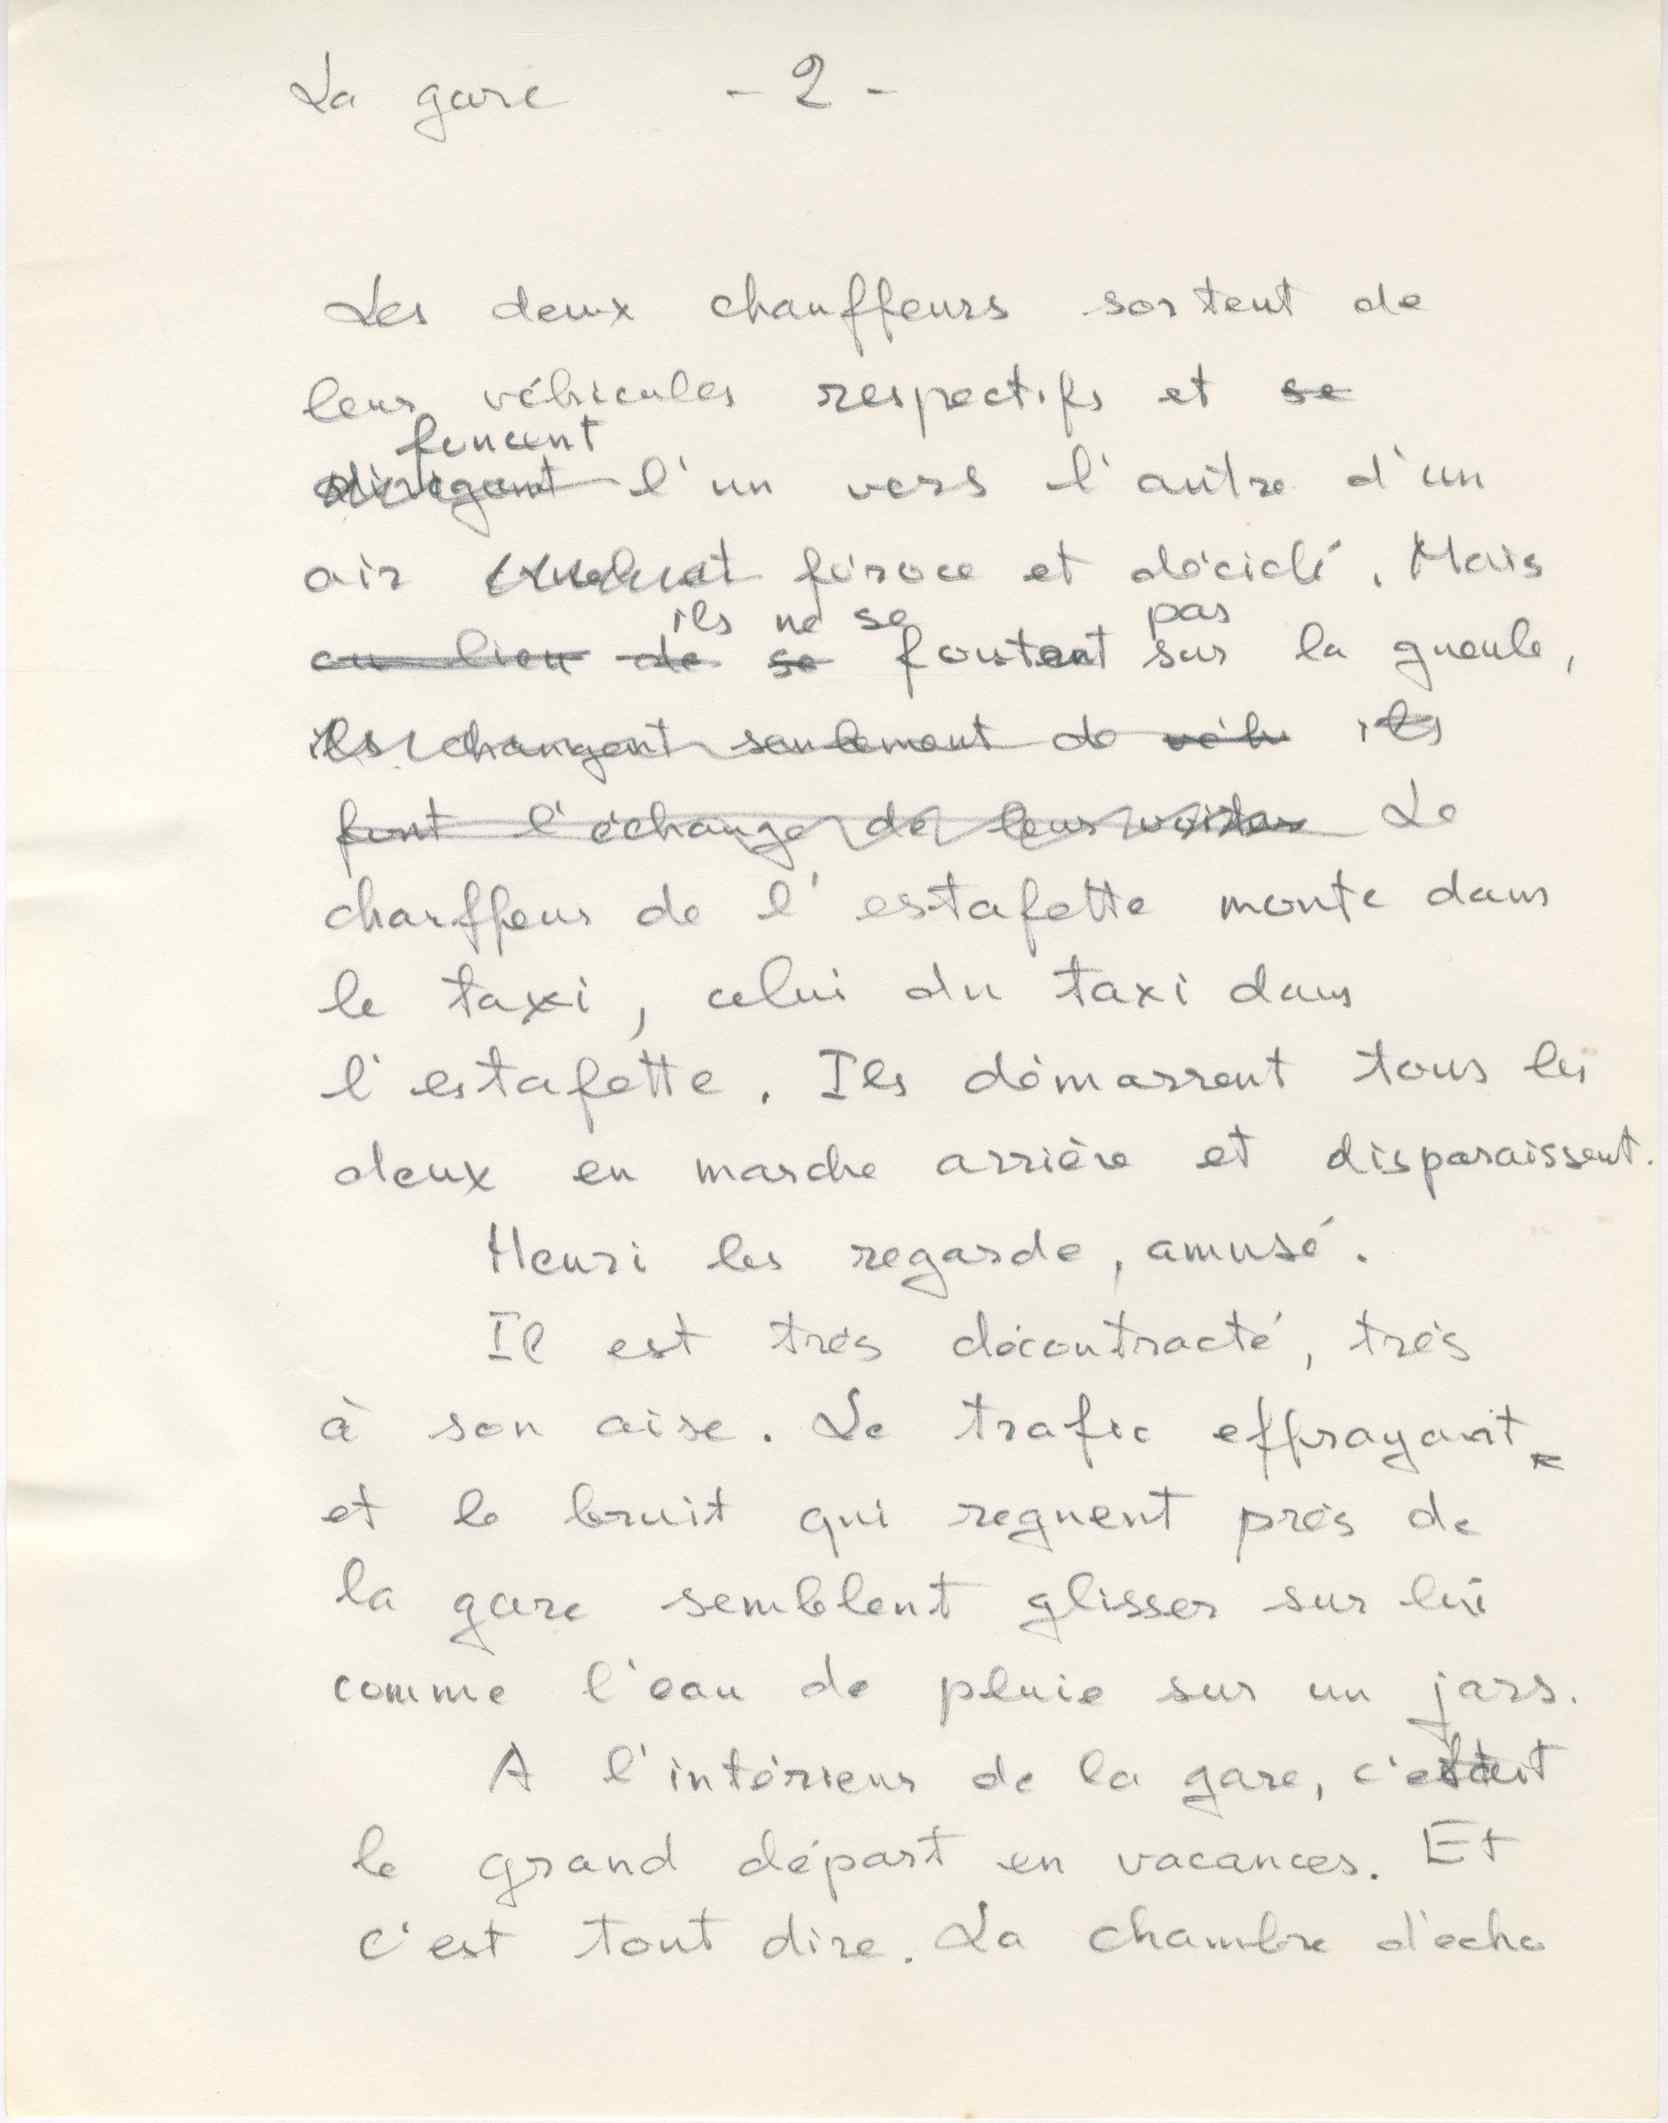 La gare - 2 -
Les deux chauffeurs sortent de
leur véhicules respectifs et se
foncent
dirigent l'un vers l'autre d'un
air féroce et décidé. Mais
ils ne se pas
au lieu de se foutent sur la gueule,
ils changent seulement de véhi ils
font l'échange de leur voitur Le
chauffeur de l'estafette monte dans
le taxi, celui du taxi dans
l'estafette. Ils démarrent tous les
deux en marche arrière et disparaissent.
Henri les regarde, amusé.
Il est très décontracté, très
à son aise. Le trafic effrayant
et le bruit qui regnent près de
la gare semblent glisser sur lui
comme l'eau de pluie sur un jars.
A l'intérieur de la gare, c'est
le grand départ en vacances. Et
c'est tout dire. La chambre d'écho